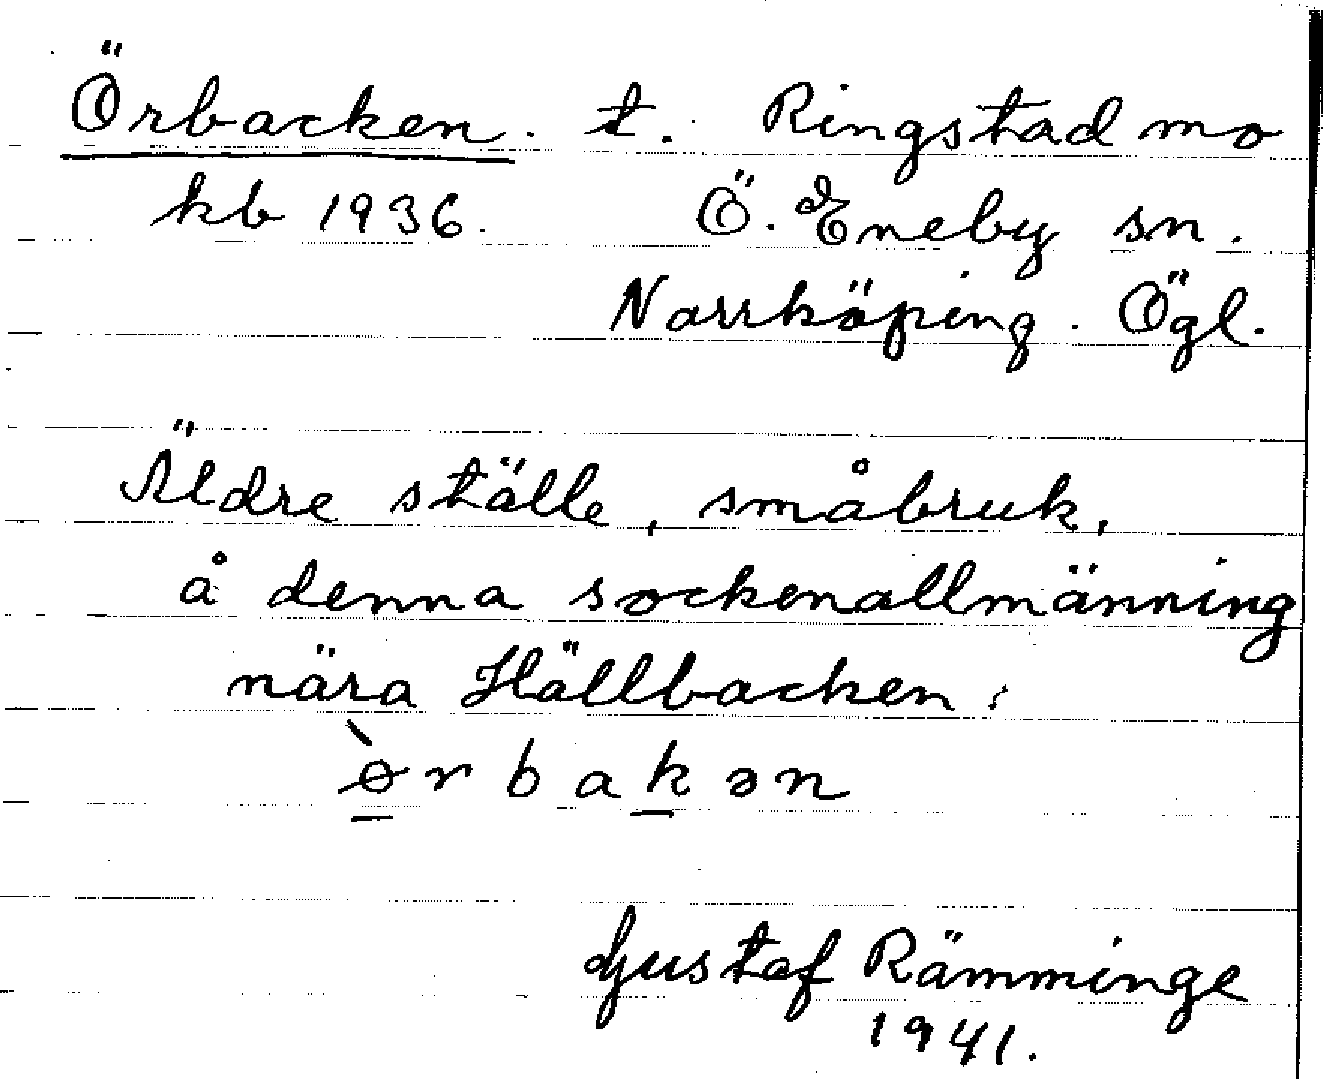 Örbacken. t. Ringstad mo
kb 1936. Ö. Eneby sn.
Norrköping. Ögl.
Äldre ställe, småbruk,
å denna sockenallmänning
nära Hällbacken:
ø̀rbakən
Gustaf Rämminge
1941.